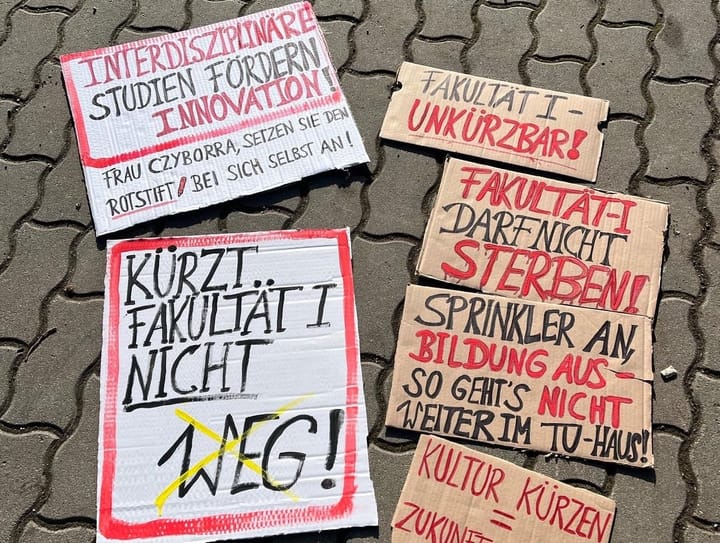 INTERDISZIPLINÄRE
STUDIEN FÖRDERN
INNOVATION!
FRAU CZYBORRA, SETZEN SIE DEN
ROTSTIFT! BEI SICH SELBST AN!
KÜRZT
FAKULTÄT I
NICHT
WEG!
FAKULTÄT I-
UNKÜRZBAR!
FAKULTÄT-I
DARF NICHT
STERBEN!
SPRINKLER AN,
BILDUNG AUS-
SO GEHT'S NICHT
WEITER IM TU-HAUS!
KULTUR KÜRZEN
=
ZUKUNFT